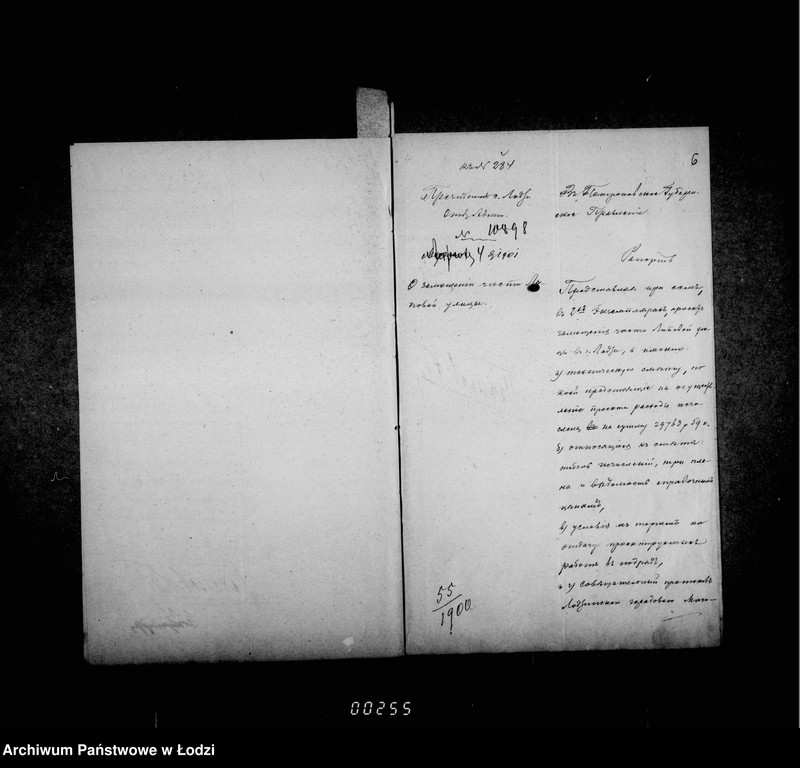 къ № 284
6
Президентъ г. Лодзи
№ 10898
4 1901
О замощеніи части Ли-
повой улицы.
Въ Петроковское Губерн-
ское Правленіе
Рапортъ
Представляя при семъ,
въ 2хъ экземплярахъ, проектъ
замощенія части Липовой ули-
цы въ г. Лодзи, а именно:
а) техническую смѣту, по
коей предстоящіе на осущест-
вленіе проекта расходы исчи-
слены на сумму 29763 р. 59 к.
б) относящіеся къ смѣтѣ
исчисленій, три пла-
на и вѣдомость справочныхъ
цѣнамъ,
в) условія къ торгамъ на
отдачу проектируемыхъ
работъ въ подрядъ,
и г) совѣщательный протоколъ
Лодзинскаго городоваго Маги-
55/1900
00255
Archiwum Państwowe w Łodzi